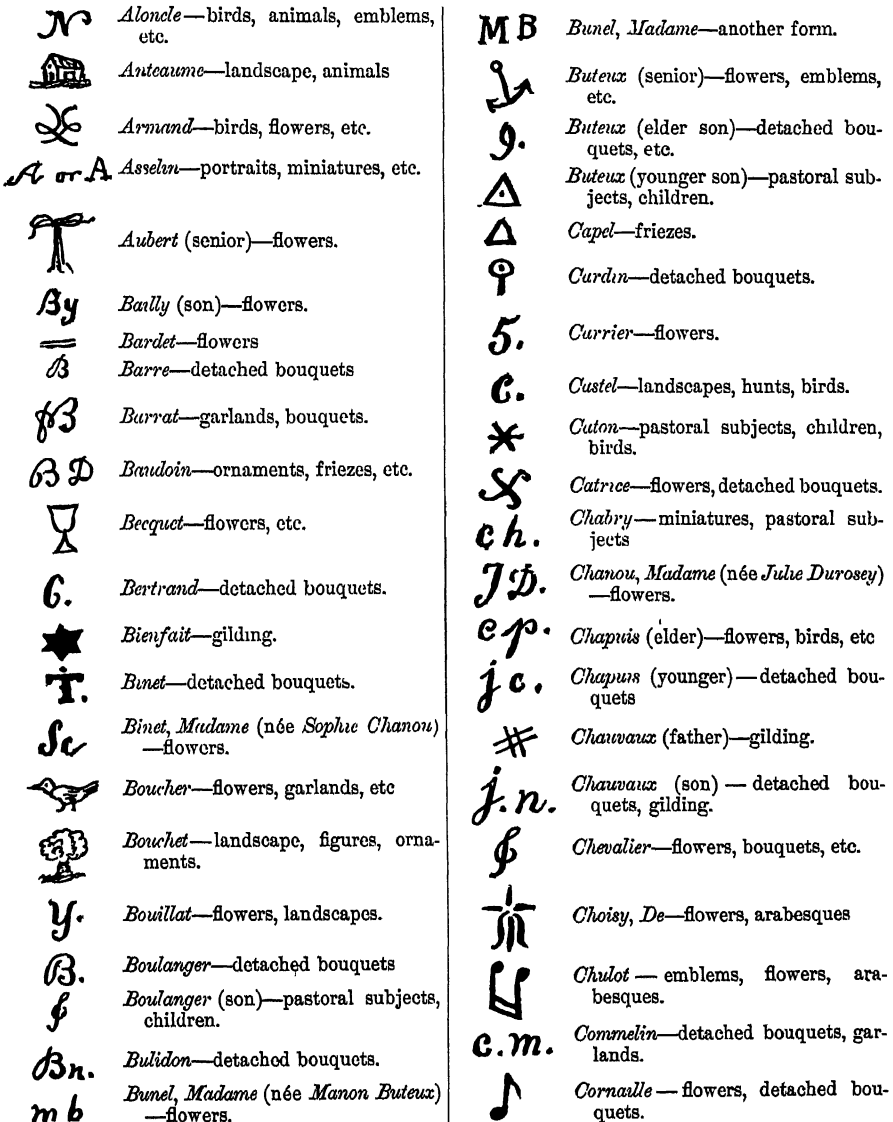 N Aloncle—birds, animals, emblems,
etc.
Anteaume—landscape, animals
Armand—birds, flowers, etc.
A or A Asselin—portraits, miniatures, etc.
Aubert (senior)—flowers.
By Bailly (son)—flowers.
Bardet—flowers
B Barre—detached bouquets
B Barrat—garlands, bouquets.
B D Baudoin—ornaments, friezes, etc.
Becquet—flowers, etc.
6. Bertrand—detached bouquets.
Bienfait—gilding.
T. Binet—detached bouquets.
Sc Binet, Madame (née Sophie Chanou)
—flowers.
Boucher—flowers, garlands, etc
Bouchet—landscape, figures, orna-
ments.
y. Bouillat—flowers, landscapes.
B. Boulanger—detached bouquets
Boulanger (son)—pastoral subjects,
children.
Bn. Bulidon—detached bouquets.
m b Bunel, Madame (née Manon Buteux)
—flowers.
M B Bunel, Madame—another form.
Buteux (senior)—flowers, emblems,
etc.
9. Buteux (elder son)—detached bou-
quets, etc.
Buteux (younger son)—pastoral sub-
jects, children.
Capel—friezes.
Cardin—detached bouquets.
5. Carrier—flowers.
C. Castel—landscapes, hunts, birds.
Caton—pastoral subjects, children,
birds.
Catrice—flowers, detached bouquets.
ch. Chabry—miniatures, pastoral sub-
jects
J D. Chanou, Madame (née Julie Durosey)
—flowers.
c p. Chapuis (elder)—flowers, birds, etc
j c. Chapuis (younger)—detached bou-
quets
Chauvaux (father)—gilding.
j. n. Chauvaux (son) — detached bou-
quets, gilding.
Chevalier—flowers, bouquets, etc.
Choisy, De—flowers, arabesques
Chulot — emblems, flowers, ara-
besques.
c. m. Commelin—detached bouquets, gar-
lands.
Cornaille — flowers, detached bou-
quets.